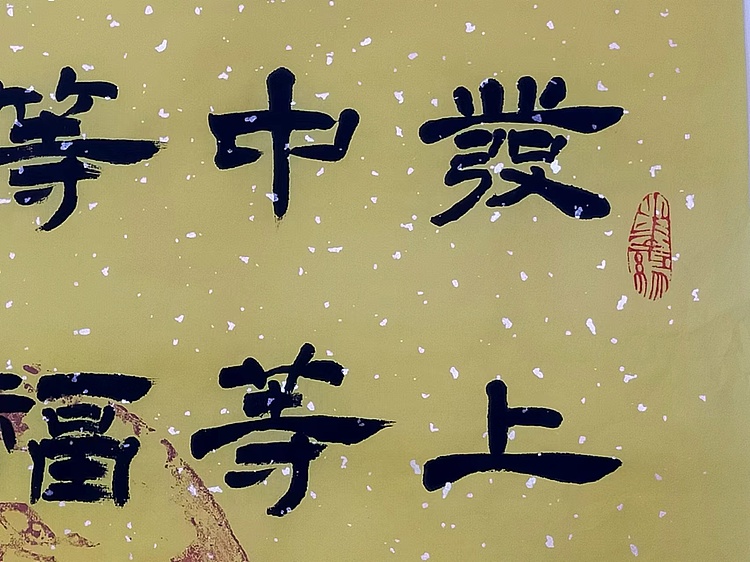 發上
中等
等福